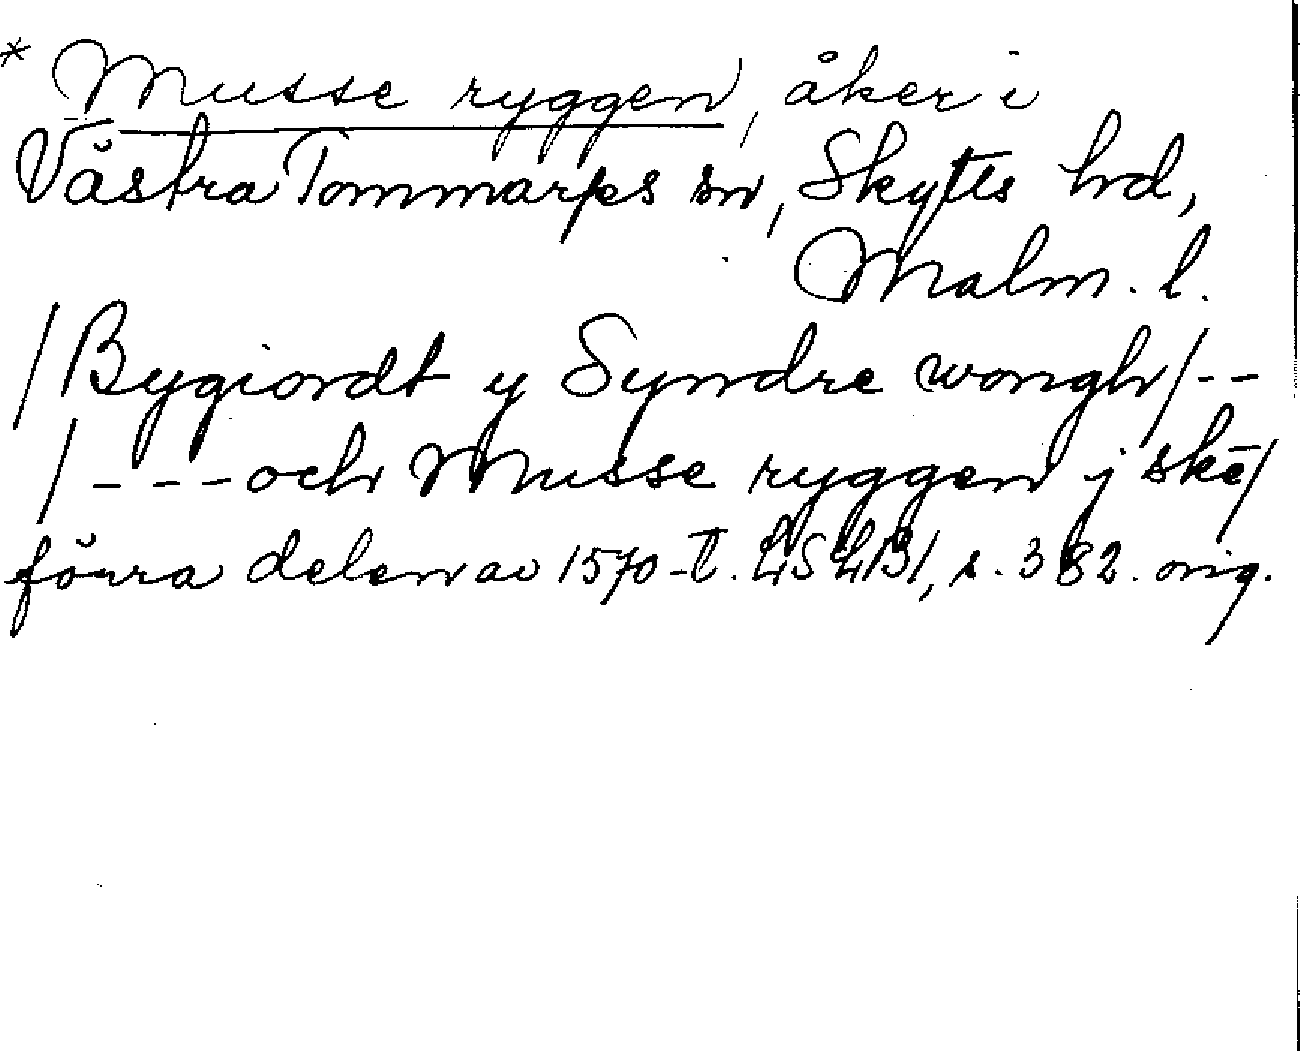 * Musse ryggen, åker i
Västra Tommarps sn, Skytts hd,
Malm. l.
/Bygiordt y Syndre wongh/--
/---och Musse ryggen j ske/
förra delen av 1570-t. LSLB1, s. 382. orig.